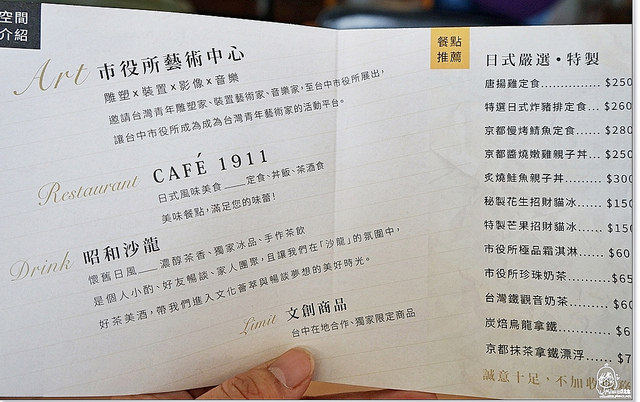 空間
介紹
Art 市役所藝術中心
雕塑 x 裝置 x 影像 x 音樂
邀請台灣青年雕塑家、裝置藝術家、音樂家，至台中市役所展出，
讓台中市役所成為成為台灣青年藝術家的活動平台。
Restaurant CAFÉ 1911
日式風味美食＿＿定食、丼飯、茶酒食
美味餐點，滿足您的味蕾！
Drink 昭和沙龍
懷舊日風＿＿濃醇茶香、獨家冰品、手作茶飲
是個人小酌、好友暢談、家人團聚，且讓我們在「沙龍」的氛圍中，
好茶美酒，帶我們進入文化薈萃與暢談夢想的美好時光。
Limit 文創商品
台中在地合作、獨家限定商品
餐點
推薦
日式嚴選・特製
唐揚雞定食............... $250
特選日式炸豬排定食... $260
京都慢烤鯖魚定食...... $280
京都醬燒嫩雞親子丼... $250
炙燒鮭魚親子丼......... $300
秘製花生招財貓冰...... $150
特製芒果招財貓冰...... $150
市役所極品霜淇淋...... $60
市役所珍珠奶茶......... $65
台灣鐵觀音奶茶......... $60
炭焙烏龍拿鐵............ $6
京都抹茶拿鐵漂浮...... $7
誠意十足，不加收